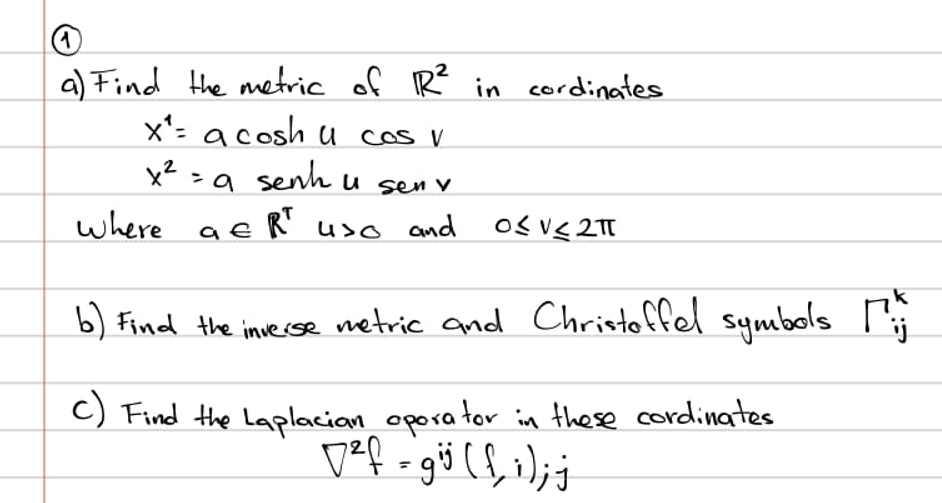 ①
a) Find the metric of ℝ² in cordinates
x¹ = a cosh u cos v
x² = a senh u sen v
where a ∈ ℝ⁺ u>0 and 0≤ v ≤ 2π
b) Find the inverse metric and Christoffel symbols Γᵏᵢⱼ
c) Find the Laplacian oporator in these cordinates
∇²f = gⁱʲ (f,i);j